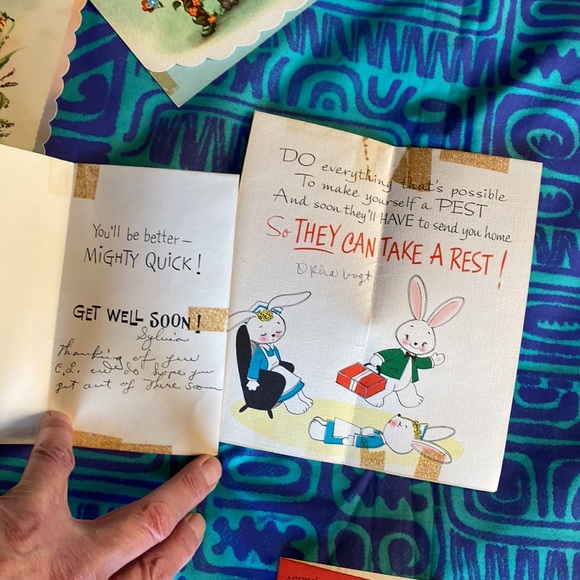 You'll be better—
MIGHTY QUICK!
GET WELL SOON!
Sylvia
Thanking of you
C.L. and do hope you
get out of There soon
DO everything that's possible
To make yourself a PEST
And soon they'll HAVE to send you home
So THEY CAN TAKE A REST!